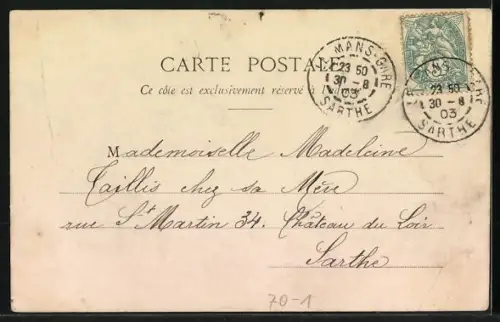 CARTE POSTALE
Ce côté est exclusivement réservé à l'adresse
LE MANS-GARE
23 50
30 - 8
03
SARTHE
LE MANS-GARE
23 50
30 - 8
03
SARTHE
Mademoiselle Madeleine
Taillis chez sa Mère
rue St Martin 34. Château du Loir
Sarthe
70-1